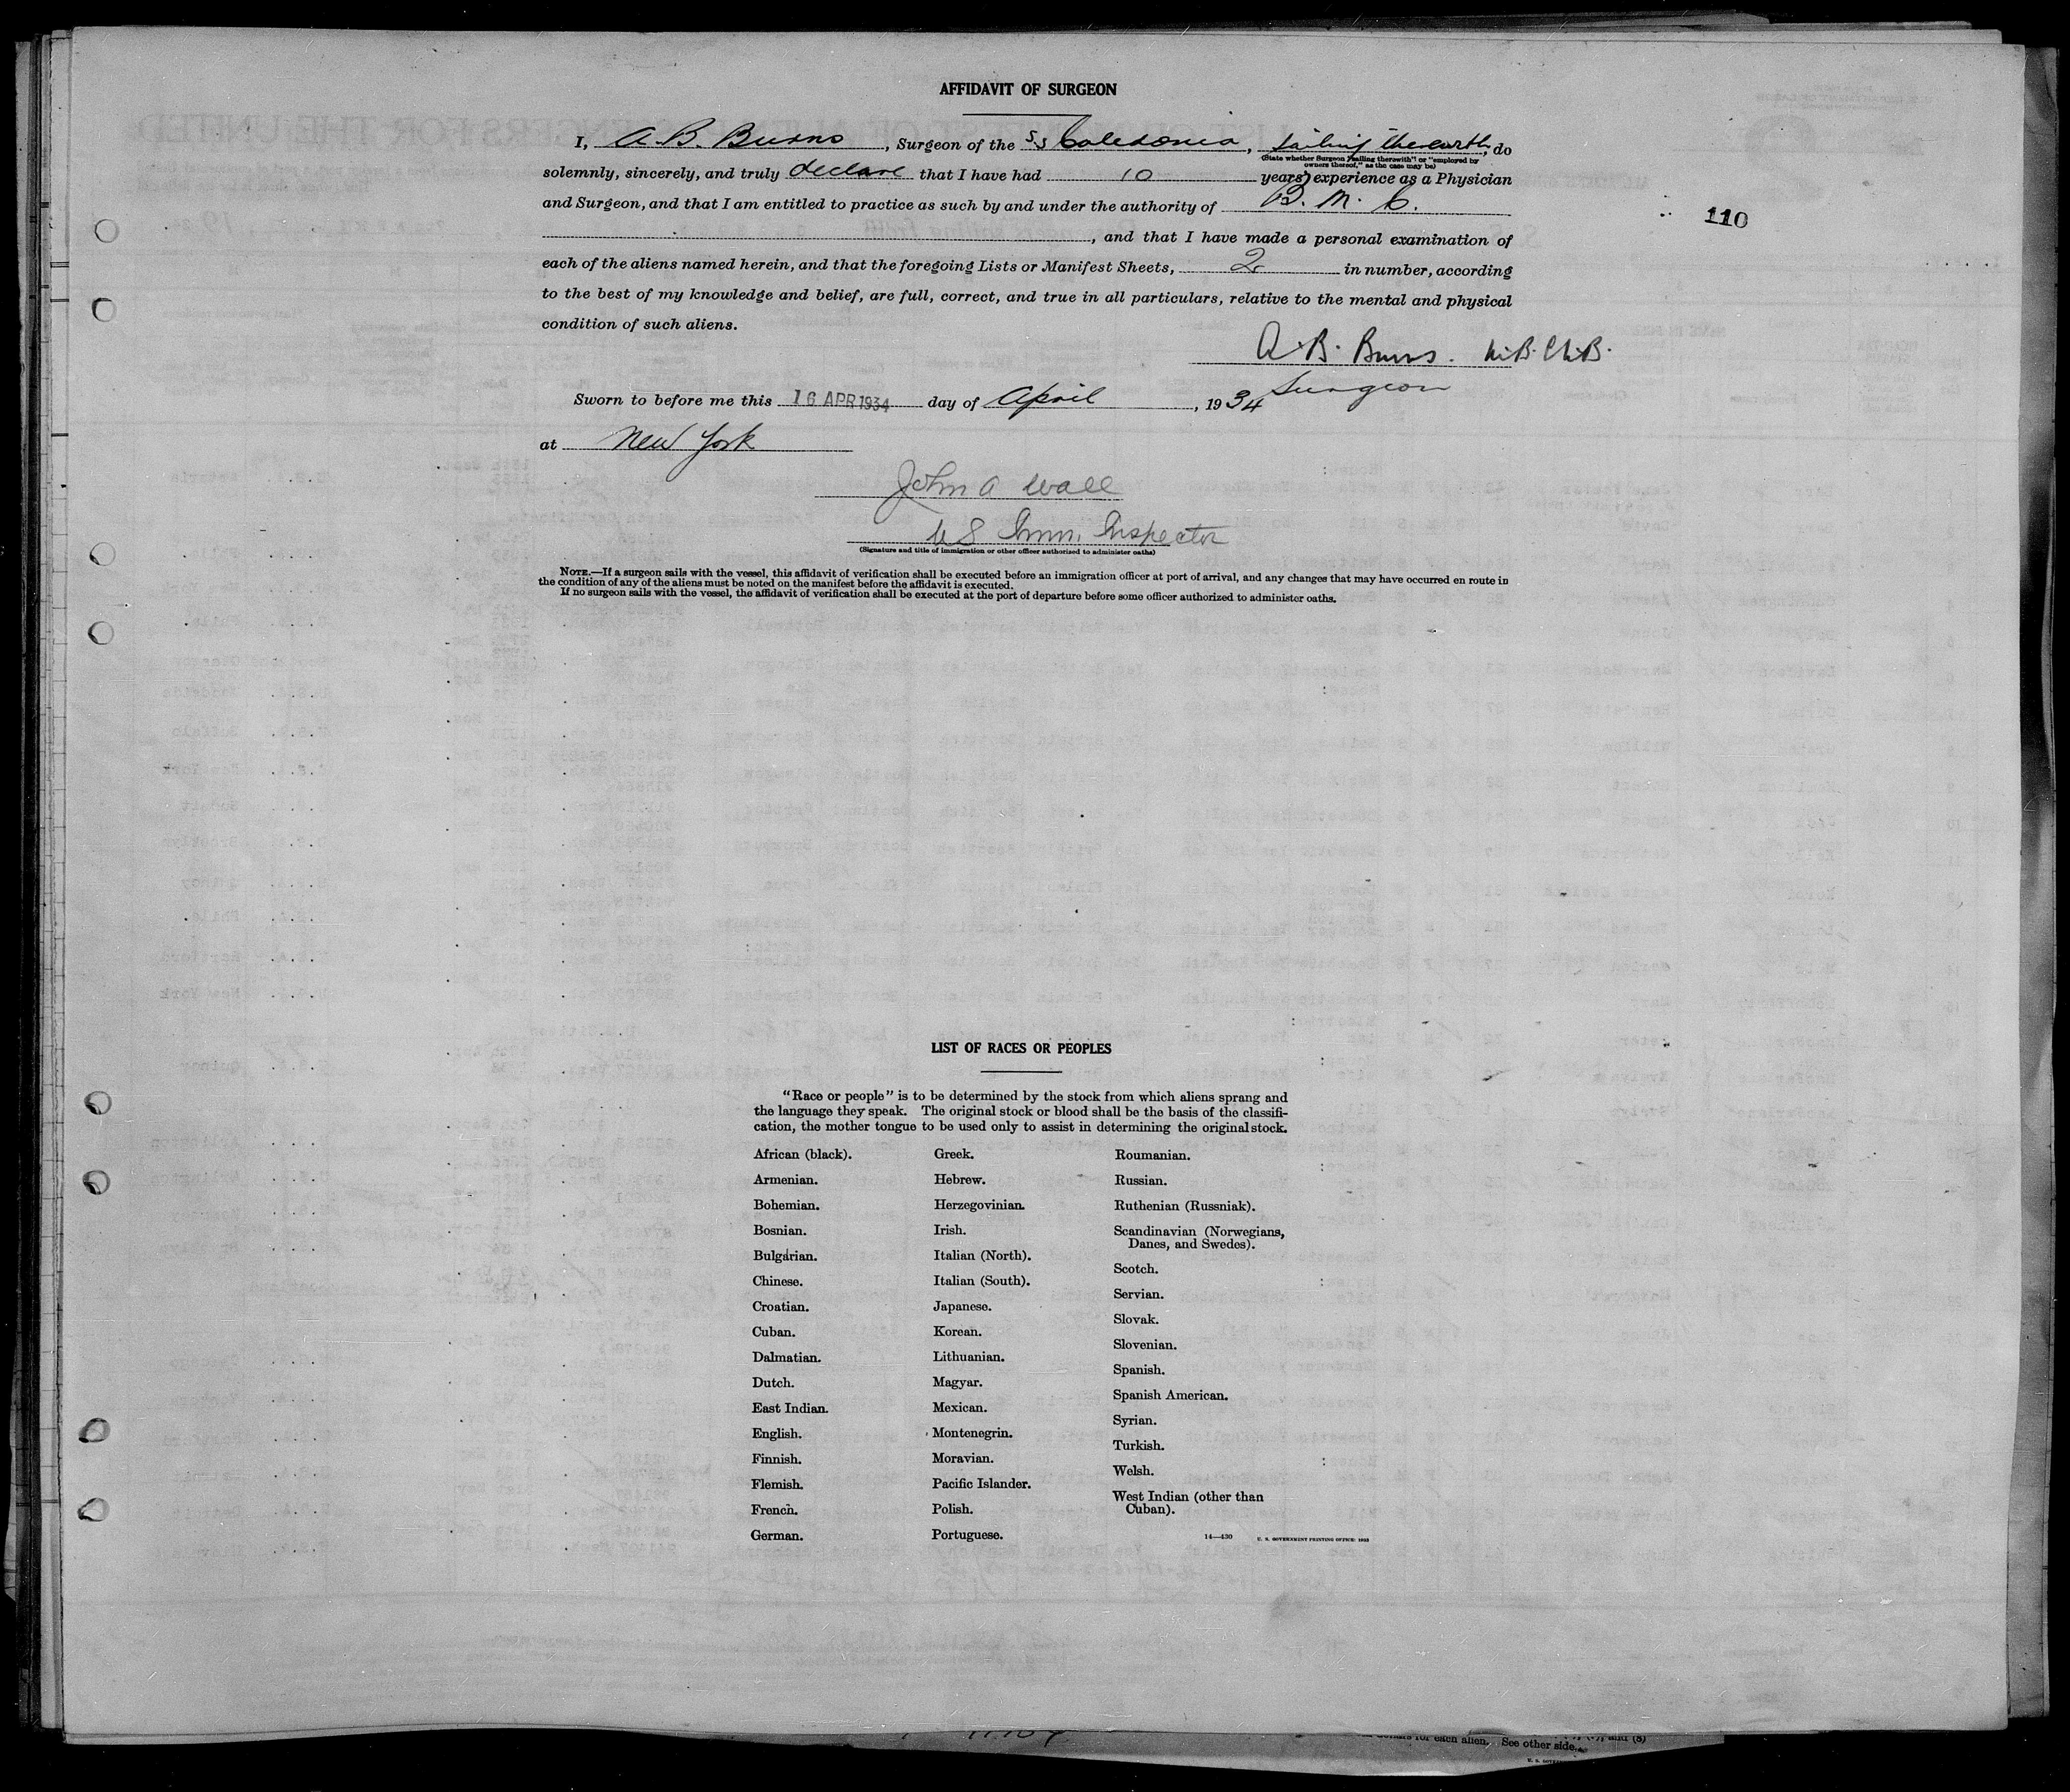 AFFIDAVIT OF SURGEON
110
I, A. B. Burns, Surgeon of the SS Caledonia, sailing therewith, do
(State whether Surgeon "sailing therewith" or "employed by
owners thereof," as the case may be)
solemnly, sincerely, and truly declare that I have had 10 years' experience as a Physician
and Surgeon, and that I am entitled to practice as such by and under the authority of B. M. C.
, and that I have made a personal examination of
each of the aliens named herein, and that the foregoing Lists or Manifest Sheets, 2 in number, according
to the best of my knowledge and belief, are full, correct, and true in all particulars, relative to the mental and physical
condition of such aliens.
A. B. Burns. M.B. Ch.B.
Surgeon
Sworn to before me this 16 APR 1934 day of April, 1934
at New York
John A Wall
US Imm. Inspector
(Signature and title of immigration or other officer authorized to administer oaths)
NOTE.—If a surgeon sails with the vessel, this affidavit of verification shall be executed before an immigration officer at port of arrival, and any changes that may have occurred en route in
the condition of any of the aliens must be noted on the manifest before the affidavit is executed.
If no surgeon sails with the vessel, the affidavit of verification shall be executed at the port of departure before some officer authorized to administer oaths.
LIST OF RACES OR PEOPLES
"Race or people" is to be determined by the stock from which aliens sprang and
the language they speak. The original stock or blood shall be the basis of the classifi-
cation, the mother tongue to be used only to assist in determining the original stock.
African (black).
Armenian.
Bohemian.
Bosnian.
Bulgarian.
Chinese.
Croatian.
Cuban.
Dalmatian.
Dutch.
East Indian.
English.
Finnish.
Flemish.
French.
German.
Greek.
Hebrew.
Herzegovinian.
Irish.
Italian (North).
Italian (South).
Japanese.
Korean.
Lithuanian.
Magyar.
Mexican.
Montenegrin.
Moravian.
Pacific Islander.
Polish.
Portuguese.
Roumanian.
Russian.
Ruthenian (Russniak).
Scandinavian (Norwegians,
Danes, and Swedes).
Scotch.
Servian.
Slovak.
Slovenian.
Spanish.
Spanish American.
Syrian.
Turkish.
Welsh.
West Indian (other than
Cuban).
14—430 U. S. GOVERNMENT PRINTING OFFICE: 1933
for each alien. See other side.